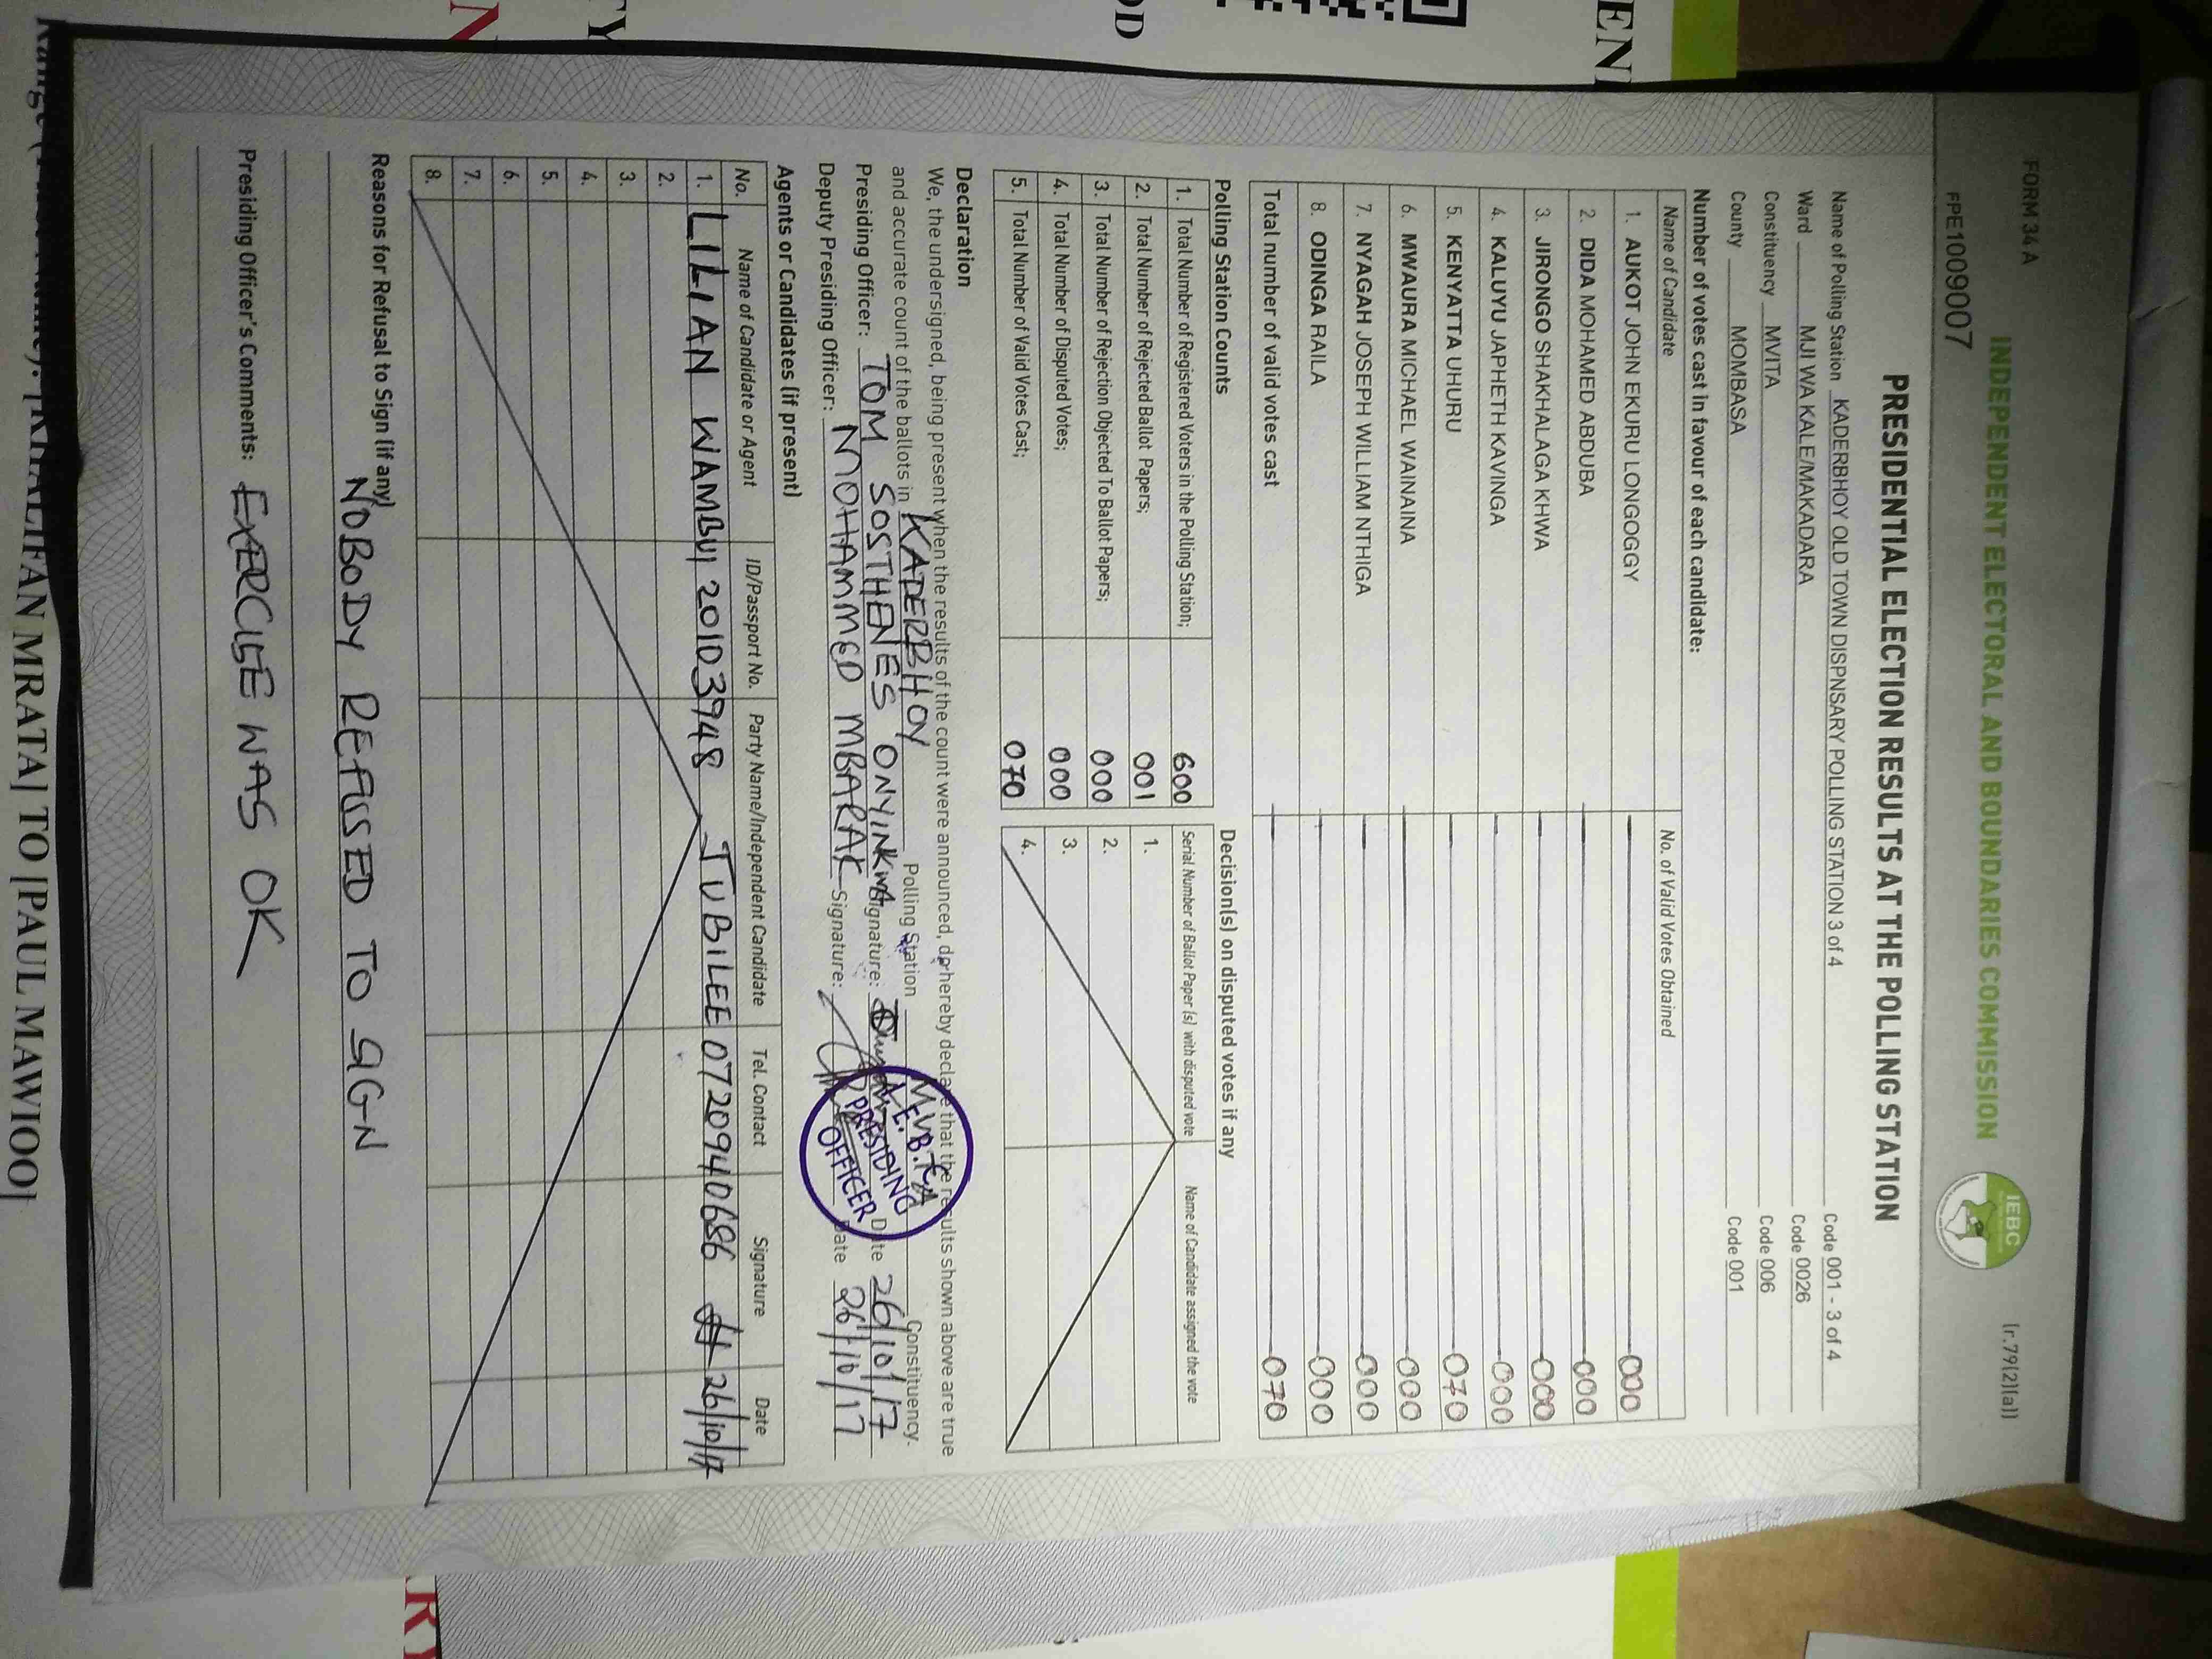 FORM 34 A
(r.79(2)(a))
INDEPENDENT ELECTORAL AND BOUNDARIES COMMISSION
IEBC
FPE1009007
PRESIDENTIAL ELECTION RESULTS AT THE POLLING STATION
Name of Polling Station KADERBHOY OLD TOWN DISPNSARY POLLING STATION 3 of 4 Code 001 - 3 of 4
Ward MJI WA KALE/MAKADARA Code 0026
Constituency MVITA Code 006
County MOMBASA Code 001
Number of votes cast in favour of each candidate:
Name of Candidate No. of Valid Votes Obtained
1. AUKOT JOHN EKURU LONGOGGY 000
2. DIDA MOHAMED ABDUBA 000
3. JIRONGO SHAKHALAGA KHWA 000
4. KALUYU JAPHETH KAVINGA 000
5. KENYATTA UHURU 070
6. MWAURA MICHAEL WAINAINA 000
7. NYAGAH JOSEPH WILLIAM NTHIGA 000
8. ODINGA RAILA 000
Total number of valid votes cast 070
Polling Station Counts Decision(s) on disputed votes if any
Serial Number of Ballot Paper (s) with disputed vote Name of Candidate assigned the vote
1. Total Number of Registered Voters in the Polling Station; 600
2. Total Number of Rejected Ballot Papers; 001 1.
3. Total Number of Rejection Objected To Ballot Papers; 000 2.
4. Total Number of Disputed Votes; 000 3.
5. Total Number of Valid Votes Cast; 070 4.
Declaration
We, the undersigned, being present when the results of the count were announced, do hereby declare that the results shown above are true
and accurate count of the ballots in KADERBHOY Polling Station MVITA Constituency.
Presiding Officer: TOM SOSTHENES ONYINKWA Signature: Date 26/10/17
Deputy Presiding Officer: MOHAMMED MBARAK Signature: Date 26/10/17
I.E.B.C
PRESIDING
OFFICER
Agents or Candidates (if present)
No. Name of Candidate or Agent ID/Passport No. Party Name/Independent Candidate Tel. Contact Signature Date
1. LILIAN WAMBUI 20103948 JUBILEE 0720940686 26/10/17
2.
3.
4.
5.
6.
7.
8.
Reasons for Refusal to Sign (if any)
NOBODY REFUSED TO SIGN
Presiding Officer's Comments: EXERCISE WAS OK
MRATA] TO [PAUL MAWIOO]